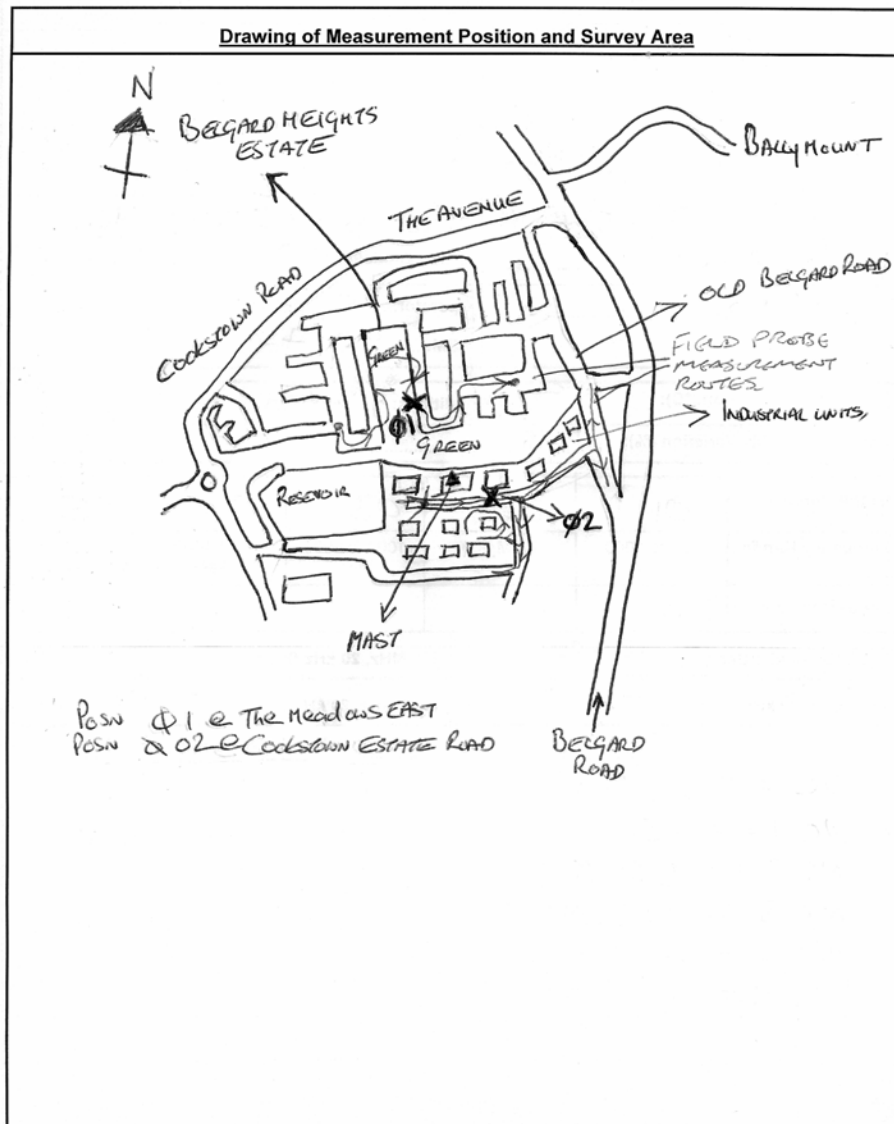 Drawing of Measurement Position and Survey Area
N
BELGARD HEIGHTS
ESTATE
BALLYMOUNT
THE AVENUE
COOKSTOWN ROAD
OLD BELGARD ROAD
FIELD PROBE
MEASUREMENT
ROUTES
GREEN
INDUSTRIAL UNITS,
Ø1
GREEN
RESERVOIR
Ø2
MAST
POSN Ø1 @ The Meadows EAST
POSN Ø2 @ COOKSTOWN ESTATE ROAD
BELGARD
ROAD